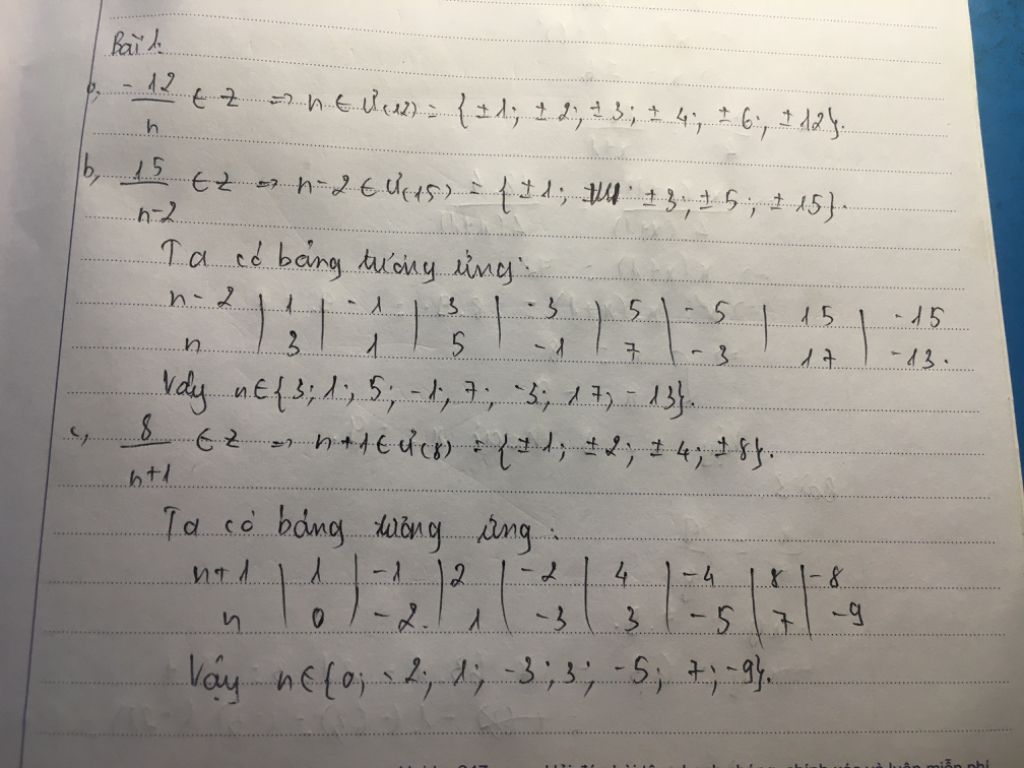 Bài 1:
a, -12/n ∈ Z => n ∈ Ư(12) = {±1; ±2; ±3; ±4; ±6; ±12}.
b, 15/n-2 ∈ Z => n-2 ∈ Ư(15) = {±1; ±3; ±5; ±15}.
Ta có bảng tương ứng:
n-2 | 1 | -1 | 3 | -3 | 5 | -5 | 15 | -15
n | 3 | 1 | 5 | -1 | 7 | -3 | 17 | -13.
Vậy n∈{3; 1; 5; -1; 7; -3; 17; -13}.
c, 8/n+1 ∈ Z => n+1 ∈ Ư(8) = {±1; ±2; ±4; ±8}.
Ta có bảng tương ứng:
n+1 | 1 | -1 | 2 | -2 | 4 | -4 | 8 | -8
n | 0 | -2 | 1 | -3 | 3 | -5 | 7 | -9
Vậy n∈{0; -2; 1; -3; 3; -5; 7; -9}.